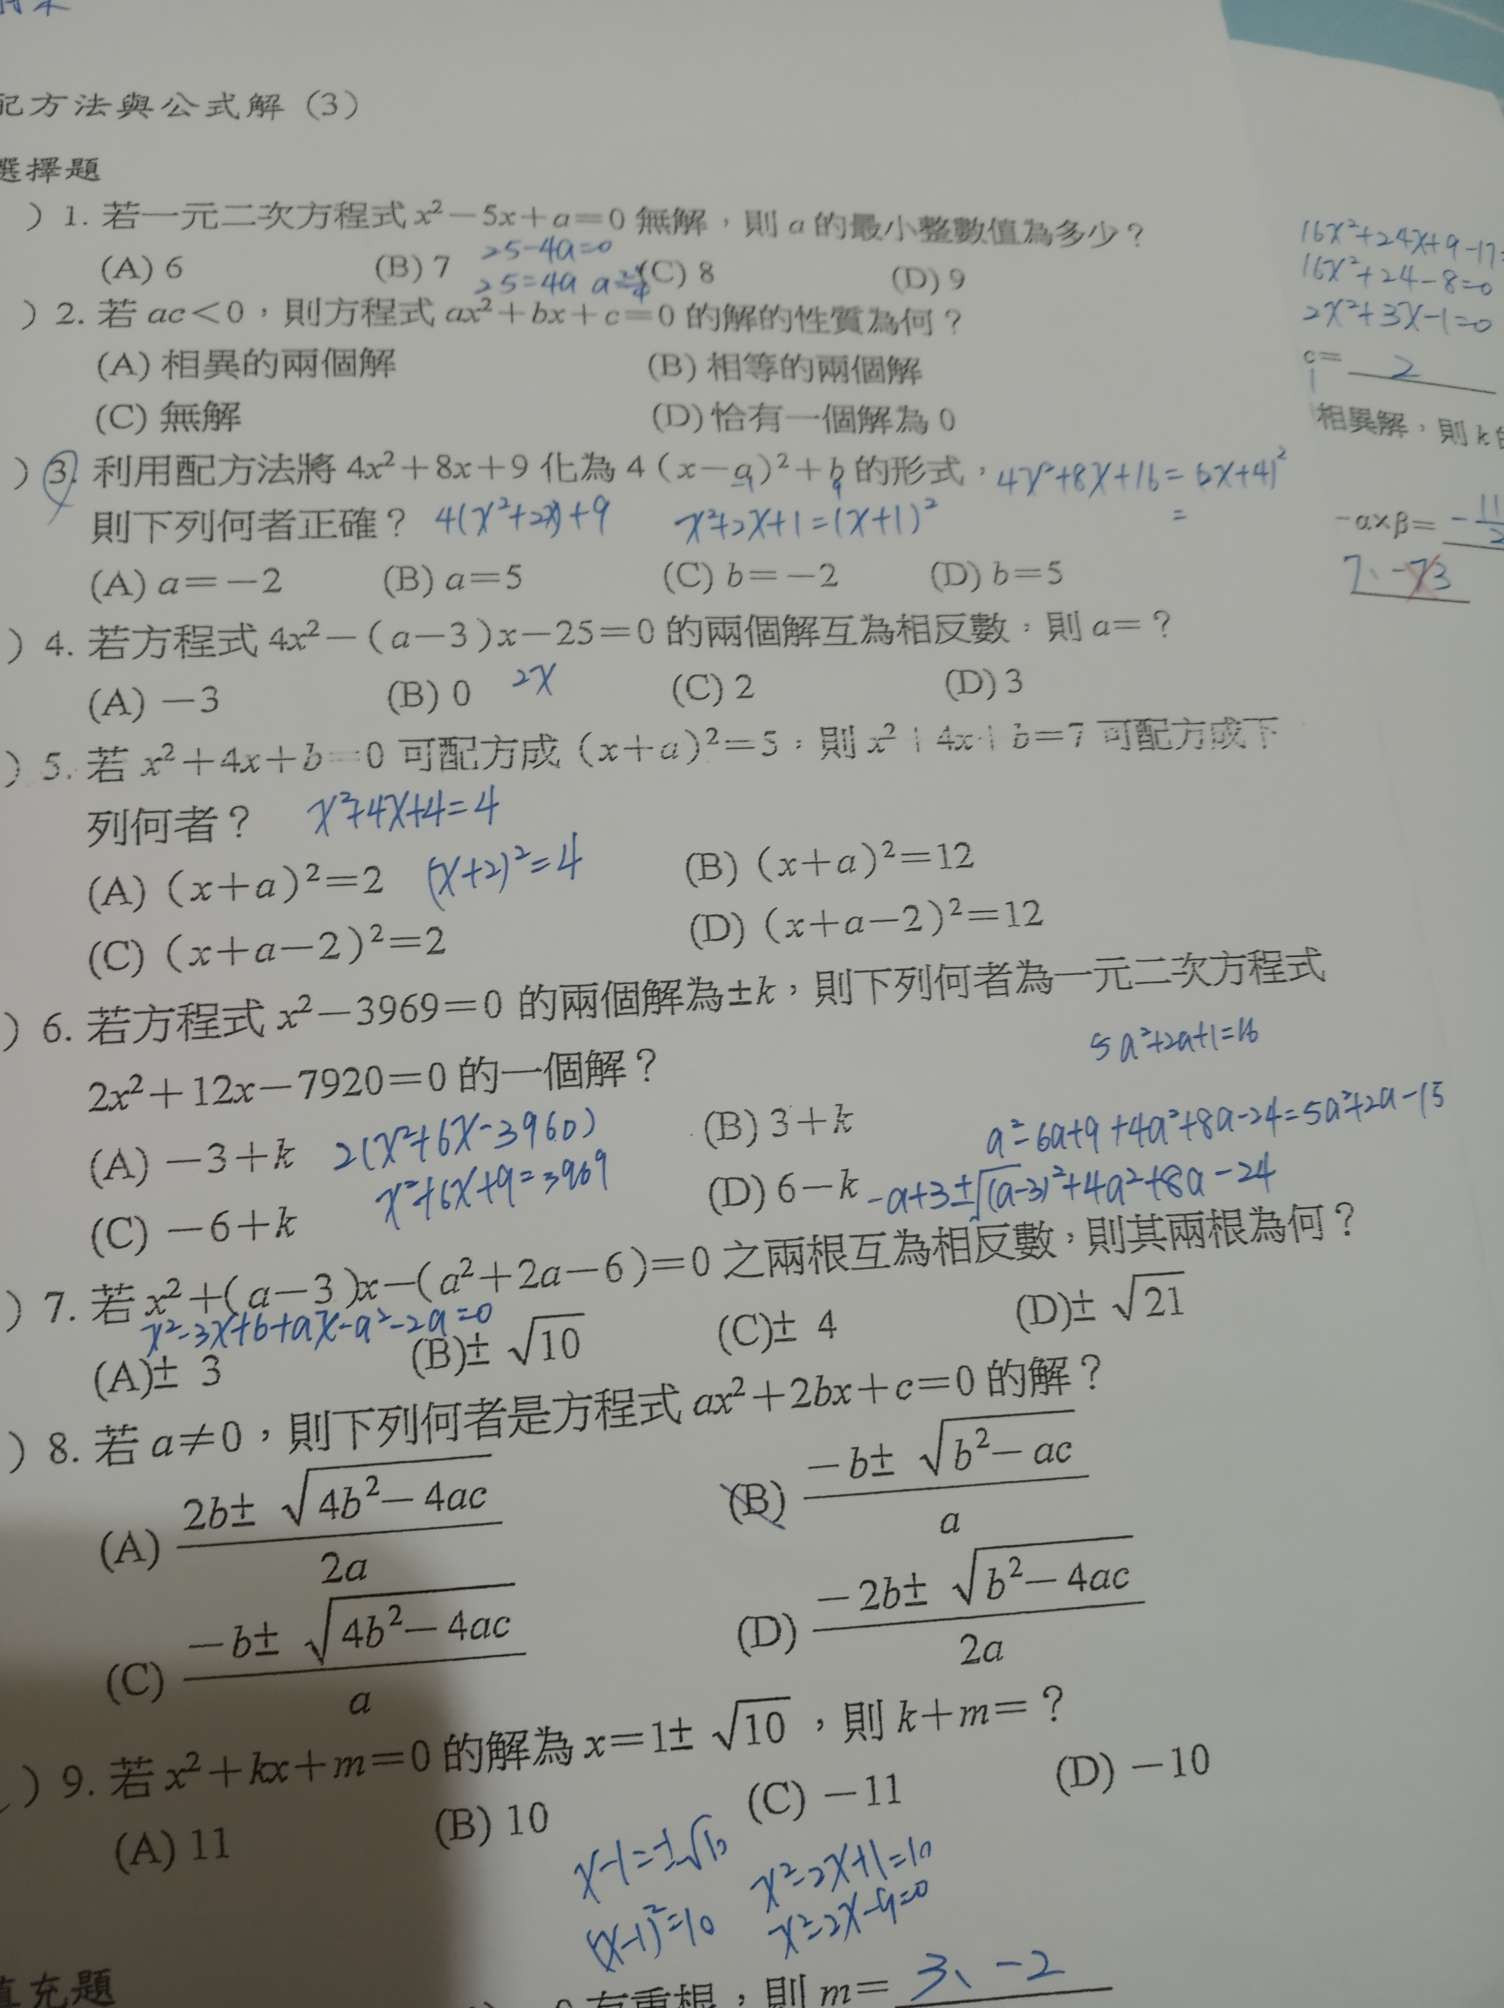 配方法與公式解 (3)
選擇題
) 1. 若一元二次方程式 x²－5x＋a＝0 無解，則 a 的最小整數值為多少？
25-4a=0
(A) 6 (B) 7 (C) 8 (D) 9
25=4a
) 2. 若 ac＜0，則方程式 ax²＋bx＋c＝0 的解的性質為何？
(A) 相異的兩個解 (B) 相等的兩個解
(C) 無解 (D) 恰有一個解為 0
) 3. 利用配方法將 4x²＋8x＋9 化為 4（x－a）²＋b 的形式，
4x²+8x+16=
則下列何者正確？ 4(x²+2x)+9 x²+2x+1=(x+1)²
=
(A) a＝－2 (B) a＝5 (C) b＝－2 (D) b＝5
) 4. 若方程式 4x²－（a－3）x－25＝0 的兩個解互為相反數，則 a＝？
(A) －3 (B) 0 2x (C) 2 (D) 3
) 5. 若 x²＋4x＋b＝0 可配方成（x＋a）²＝5，則 x²＋4x＋b＝7 可配方成下
列何者？ x²+4x+4=4
(A)（x＋a）²＝2 (x+2)²=4 (B)（x＋a）²＝12
(C)（x＋a－2）²＝2 (D)（x＋a－2）²＝12
) 6. 若方程式 x²－3969＝0 的兩個解為±k，則下列何者為一元二次方程式
5a²+2a+1=16
2x²＋12x－7920＝0 的一個解？
(A) －3＋k 2(x²+6x-3960) (B) 3＋k a²-6a+9+4a²+8a-24=5a²+2a-15
(C) －6＋k x²+6x+9=3969 (D) 6－k -a+3±√(a-3)²+4a²+8a-24
) 7. 若 x²＋(a－3)x－(a²＋2a－6)＝0 之兩根互為相反數，則其兩根為何？
x²-3x+6+ax-a²-2a=0
(A)± 3 (B)± √10 (C)± 4 (D)± √21
) 8. 若 a≠0，則下列何者是方程式 ax²＋2bx＋c＝0 的解？
(A) 2b± √4b²－4ac / 2a (B) －b± √b²－ac / a
(C) －b± √4b²－4ac / a (D) －2b± √b²－4ac / 2a
) 9. 若 x²＋kx＋m＝0 的解為 x＝1± √10，則 k＋m＝？
(A) 11 (B) 10 (C) －11 (D) －10
x-1=±√10 x²-2x+1=10
(x-1)²=10 x²-2x-9=0
填充題
有重根，則 m＝ 3、-2
16x²+24x+9-17=
16x²+24-8=0
2x²+3x-1=0
c＝ 2
相異解，則 k
－α×β＝ -11/2
7、-73